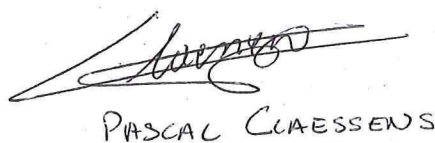 PASCAL CLAESSENS